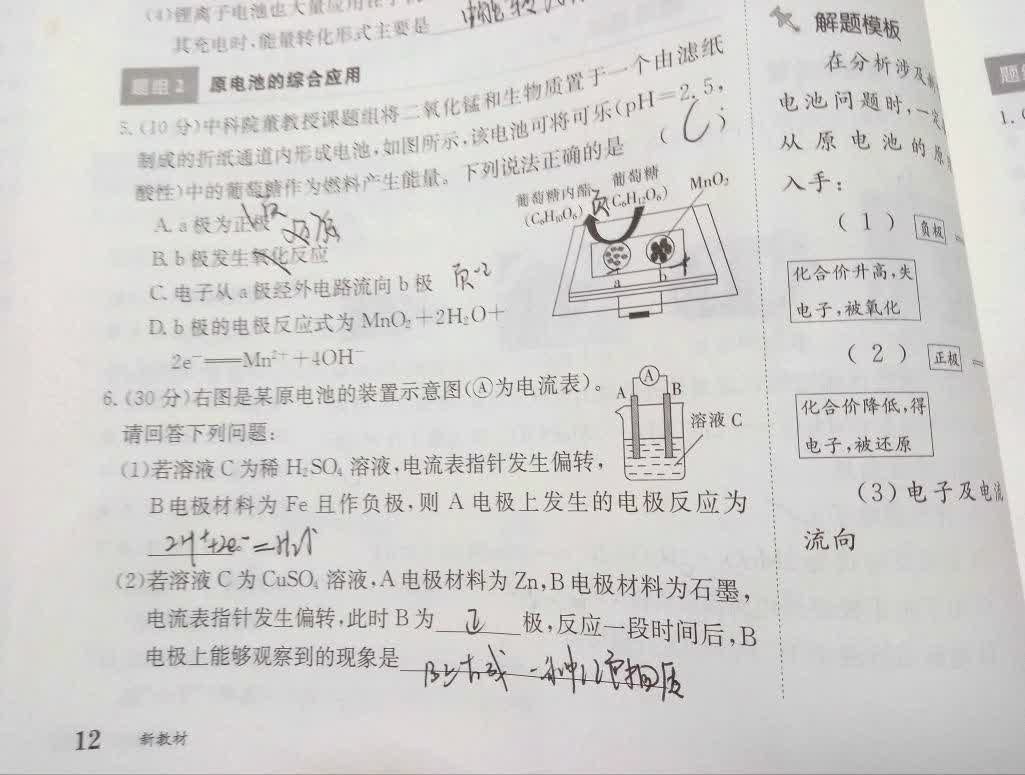 (4)锂离子电池也大量应用在
其充电时,能量转化形式主要是
题组2 原电池的综合应用
5.(10分)中科院董教授课题组将二氧化锰和生物质置于一个由滤纸
制成的折纸通道内形成电池,如图所示,该电池可将可乐(pH=2.5,
酸性)中的葡萄糖作为燃料产生能量。下列说法正确的是 ( C )
葡萄糖内酯 葡萄糖 MnO₂
(C₆H₁₀O₆) 负 (C₆H₁₂O₆)
A. a极为正极
B. b极发生氧化反应
a b +
C. 电子从a极经外电路流向b极 负→正
D. b极的电极反应式为MnO₂+2H₂O+
2e⁻══Mn²⁺+4OH⁻
6.(30分)右图是某原电池的装置示意图(Ⓐ为电流表)。
A Ⓐ B
溶液C
请回答下列问题:
(1)若溶液C为稀H₂SO₄溶液,电流表指针发生偏转,
B电极材料为Fe且作负极,则A电极上发生的电极反应为
2H⁺+2e⁻=H₂↑
(2)若溶液C为CuSO₄溶液,A电极材料为Zn,B电极材料为石墨,
电流表指针发生偏转,此时B为 正 极,反应一段时间后,B
电极上能够观察到的现象是
12 新教材
解题模板
在分析涉及
电池问题时,一定
从原电池的原
入手:
(1) 负极 =
化合价升高,失
电子,被氧化
(2) 正极 =
化合价降低,得
电子,被还原
(3)电子及电流
流向
题
1.(